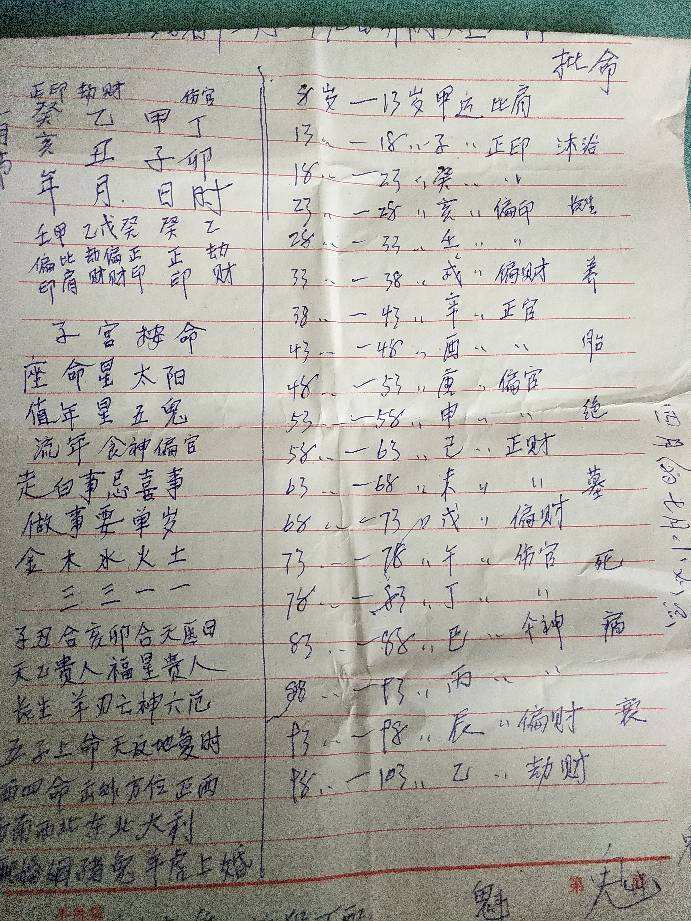 批命
正印 劫财 伤官
癸 乙 甲 丁
亥 丑 子 卯
年 月 日 时
壬甲 乙戊癸 癸 乙
偏比 劫偏正 正 劫
印肩 财财印 印 财
子宫按命
座命星太阳
值年星五鬼
流年食神偏官
走白事忌喜事
做事要单岁
金木水火土
三三一一
子丑合亥卯合天医日
天乙貴人福星貴人
长生羊刃亡神六厄
五子上命天反地复时
西四命 方位正西
南西北东北大利
猪兔羊虎上婚
8岁一13岁甲运比肩
13〃一18〃子〃正印 沐浴
18〃一23〃癸〃〃
23〃一28〃亥〃偏印 长生
28〃一33〃壬〃〃
33〃一38〃戌〃偏财 养
38〃一43〃辛〃正官
43〃一48〃酉〃〃 胎
48〃一53〃庚〃偏官
53〃一58〃申〃〃 绝
58〃一63〃己〃正财
63〃一68〃未〃〃 墓
68〃一73〃戊〃偏财
73〃一78〃午〃伤官 死
78〃一83〃丁〃〃
83〃一88〃巳〃伞神 病
88〃一93〃丙〃〃
93〃一98〃辰〃偏财 衰
98〃一103〃乙〃劫财
第
魁